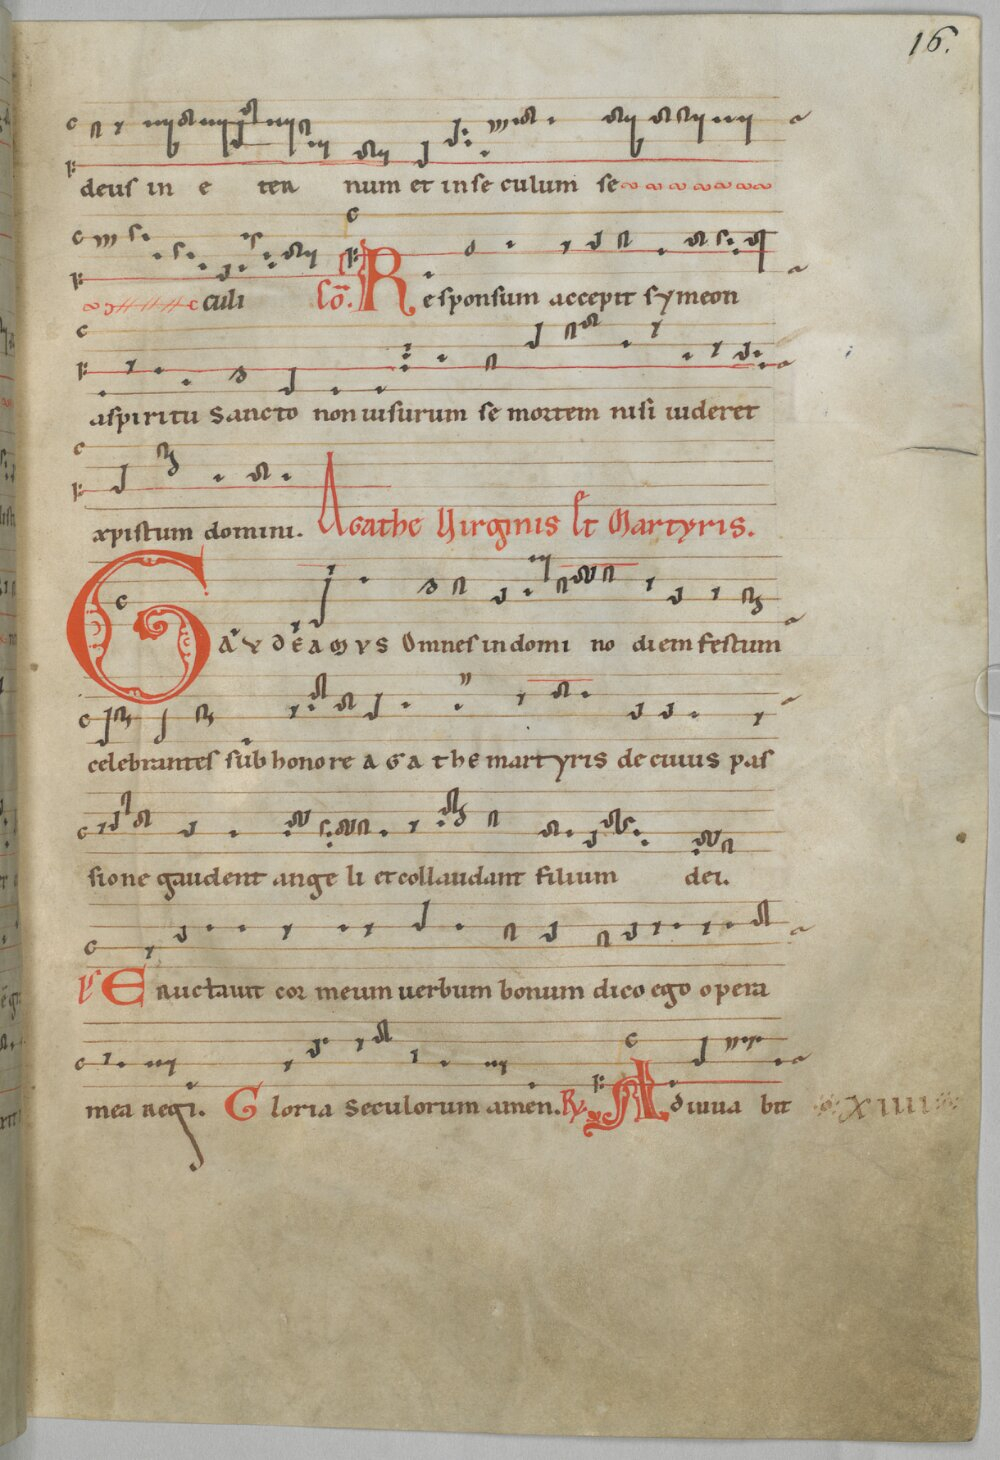 16.
deus in e ter num et in se culum se
culi Cō. Responsum accepit symeon
aspiritu sancto non uisurum se mortem nisi uideret
xpistum domini. Agathe Uirginis Et Martyris.
GAVDEAMVS Omnes in domi no diem festum
celebrantes sub honore AGATHE martyris de cuius pas
sione gaudent ange li et collaudant filium dei.
Ps Eructauit cor meum uerbum bonum dico ego opera
mea regi. Gloria seculorum amen. R. Adiuua bit xiiii